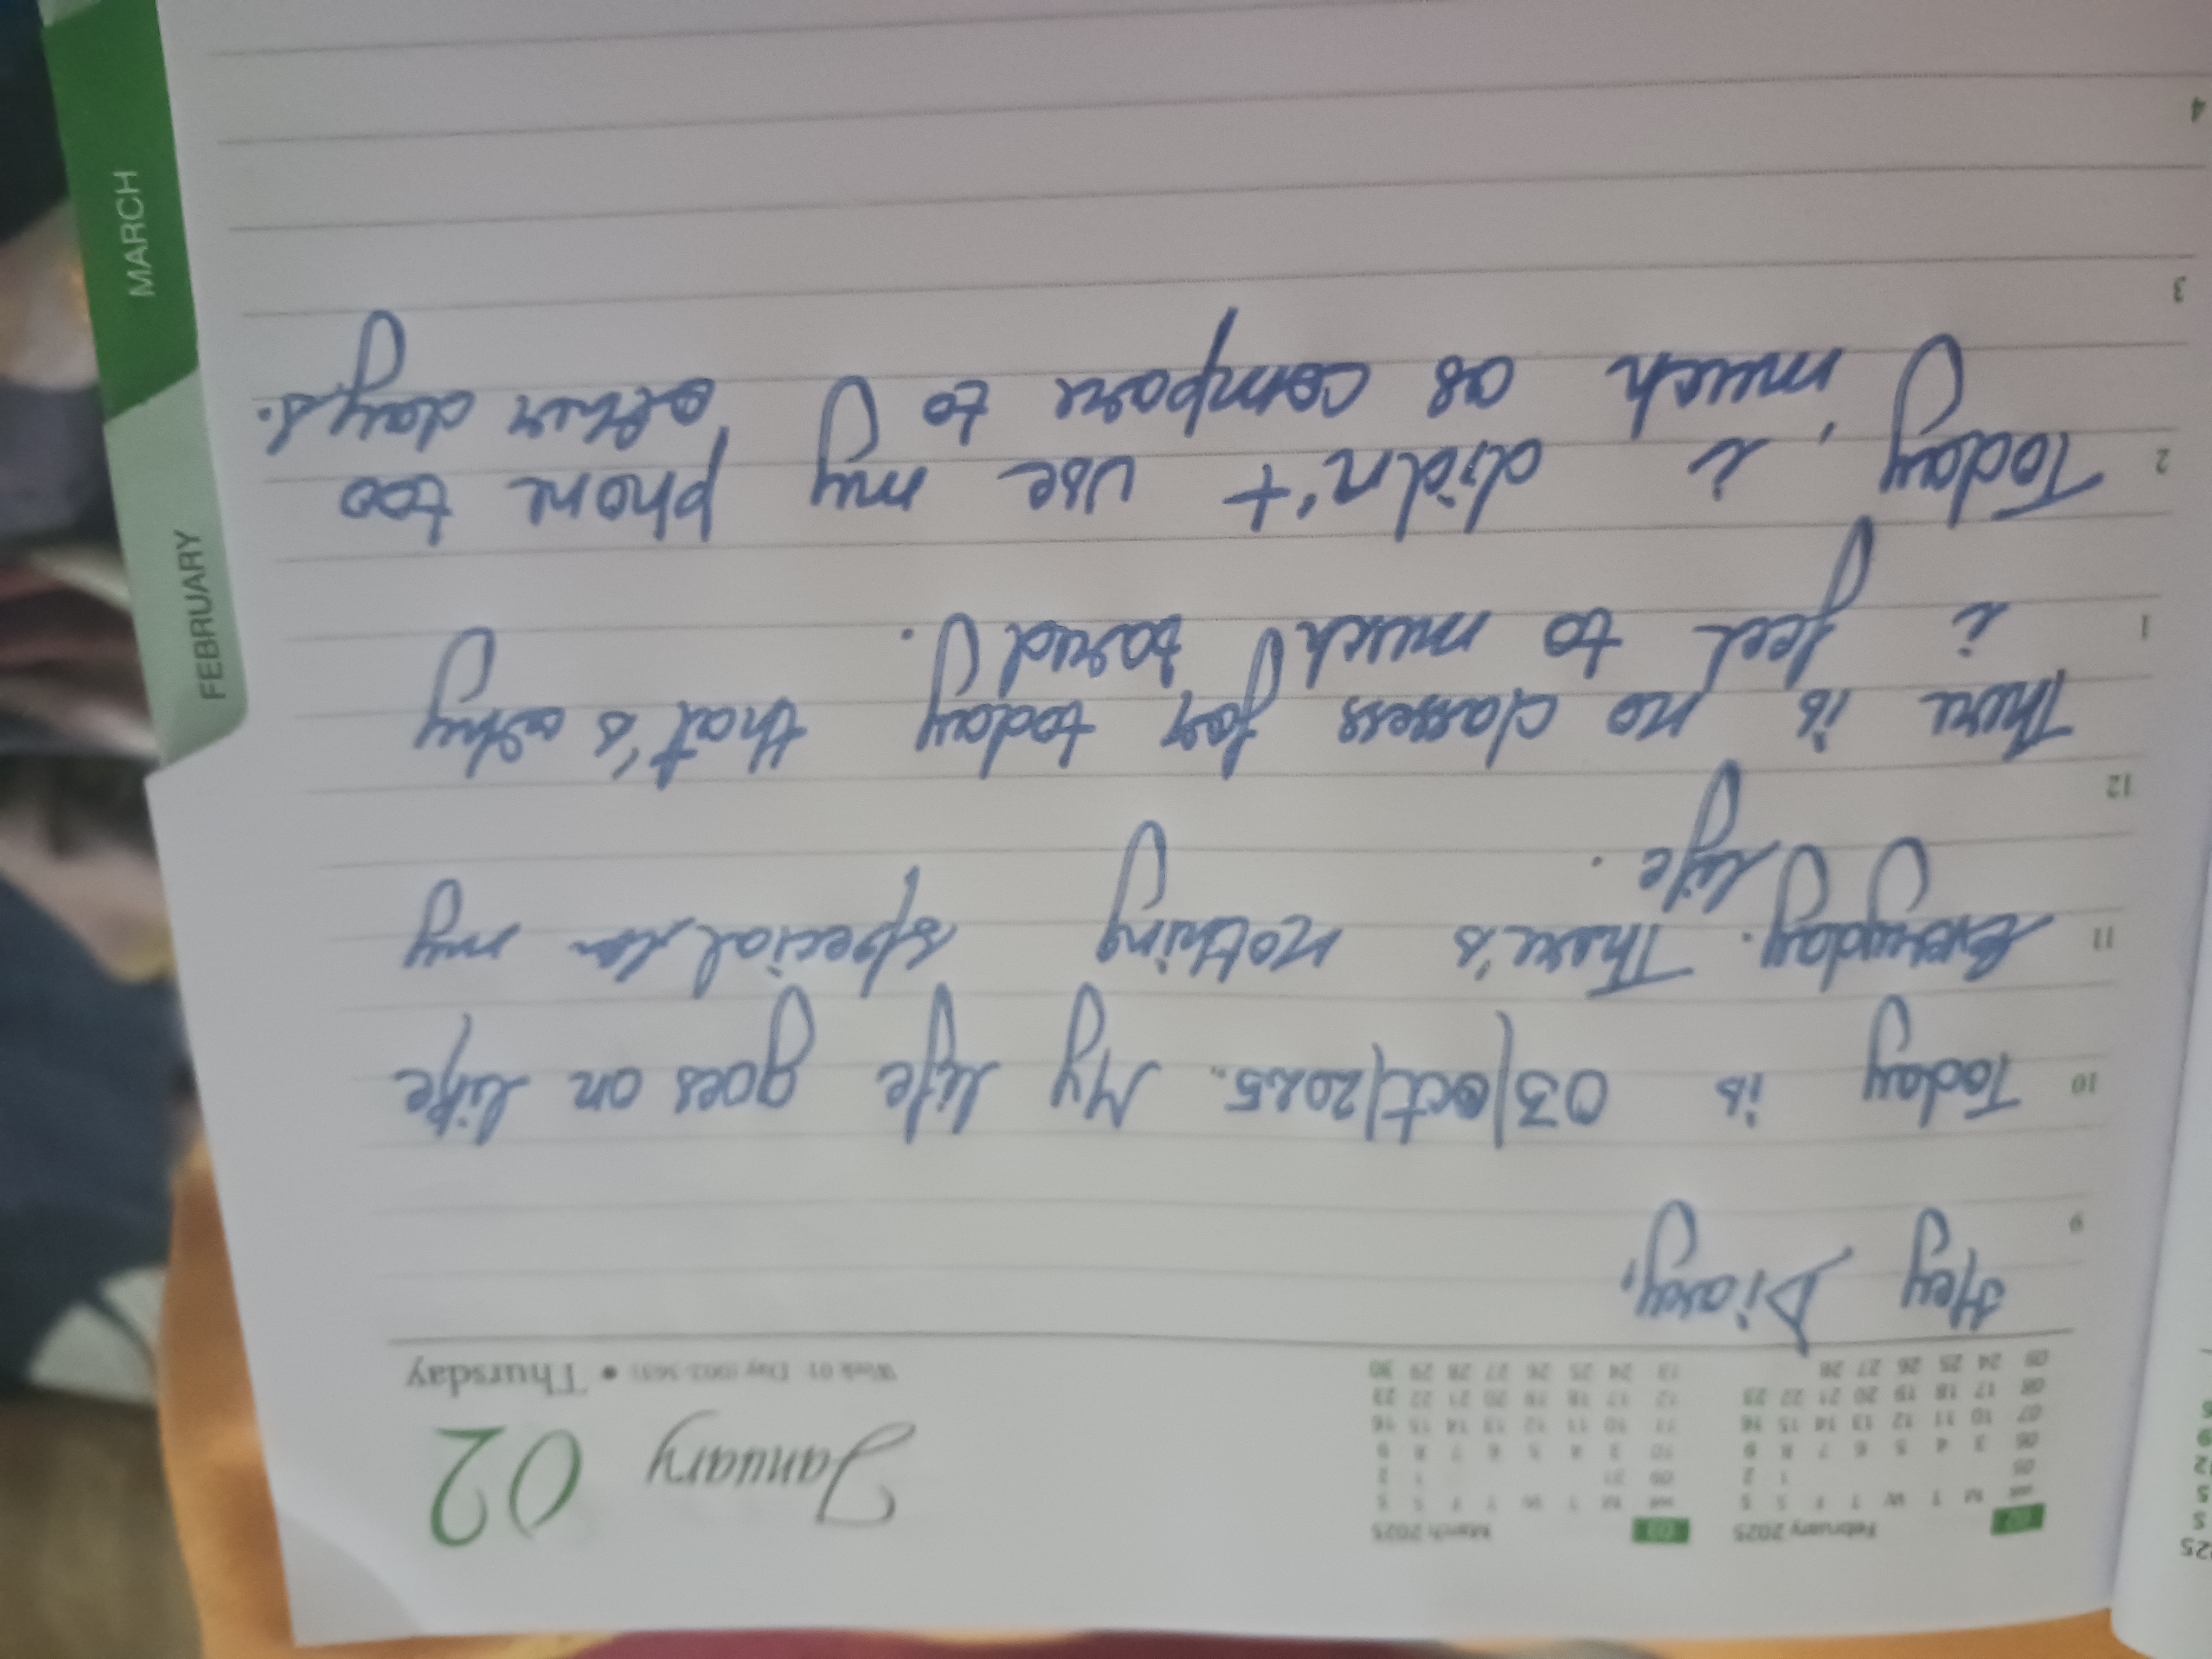 02 February 2025
03 March 2025
January 02
wk M T W T F S S
wk M T W T F S S
05 1 2
09 31 1 2
06 3 4 5 6 7 8 9
10 3 4 5 6 7 8 9
07 10 11 12 13 14 15 16
11 10 11 12 13 14 15 16
08 17 18 19 20 21 22 23
12 17 18 19 20 21 22 23
09 24 25 26 27 28
13 24 25 26 27 28 29 30
Week 01 Day (002-363) • Thursday
Hey Diary,
9
10 Today is 03/oct/2025. My life goes on like
11 Everyday. There's nothing special in my
life.
12
There is no classess for today that's why
1 i feel to much bored.
2 Today, i didn't use my phone too
much as compare to other days.
3
4
FEBRUARY
MARCH